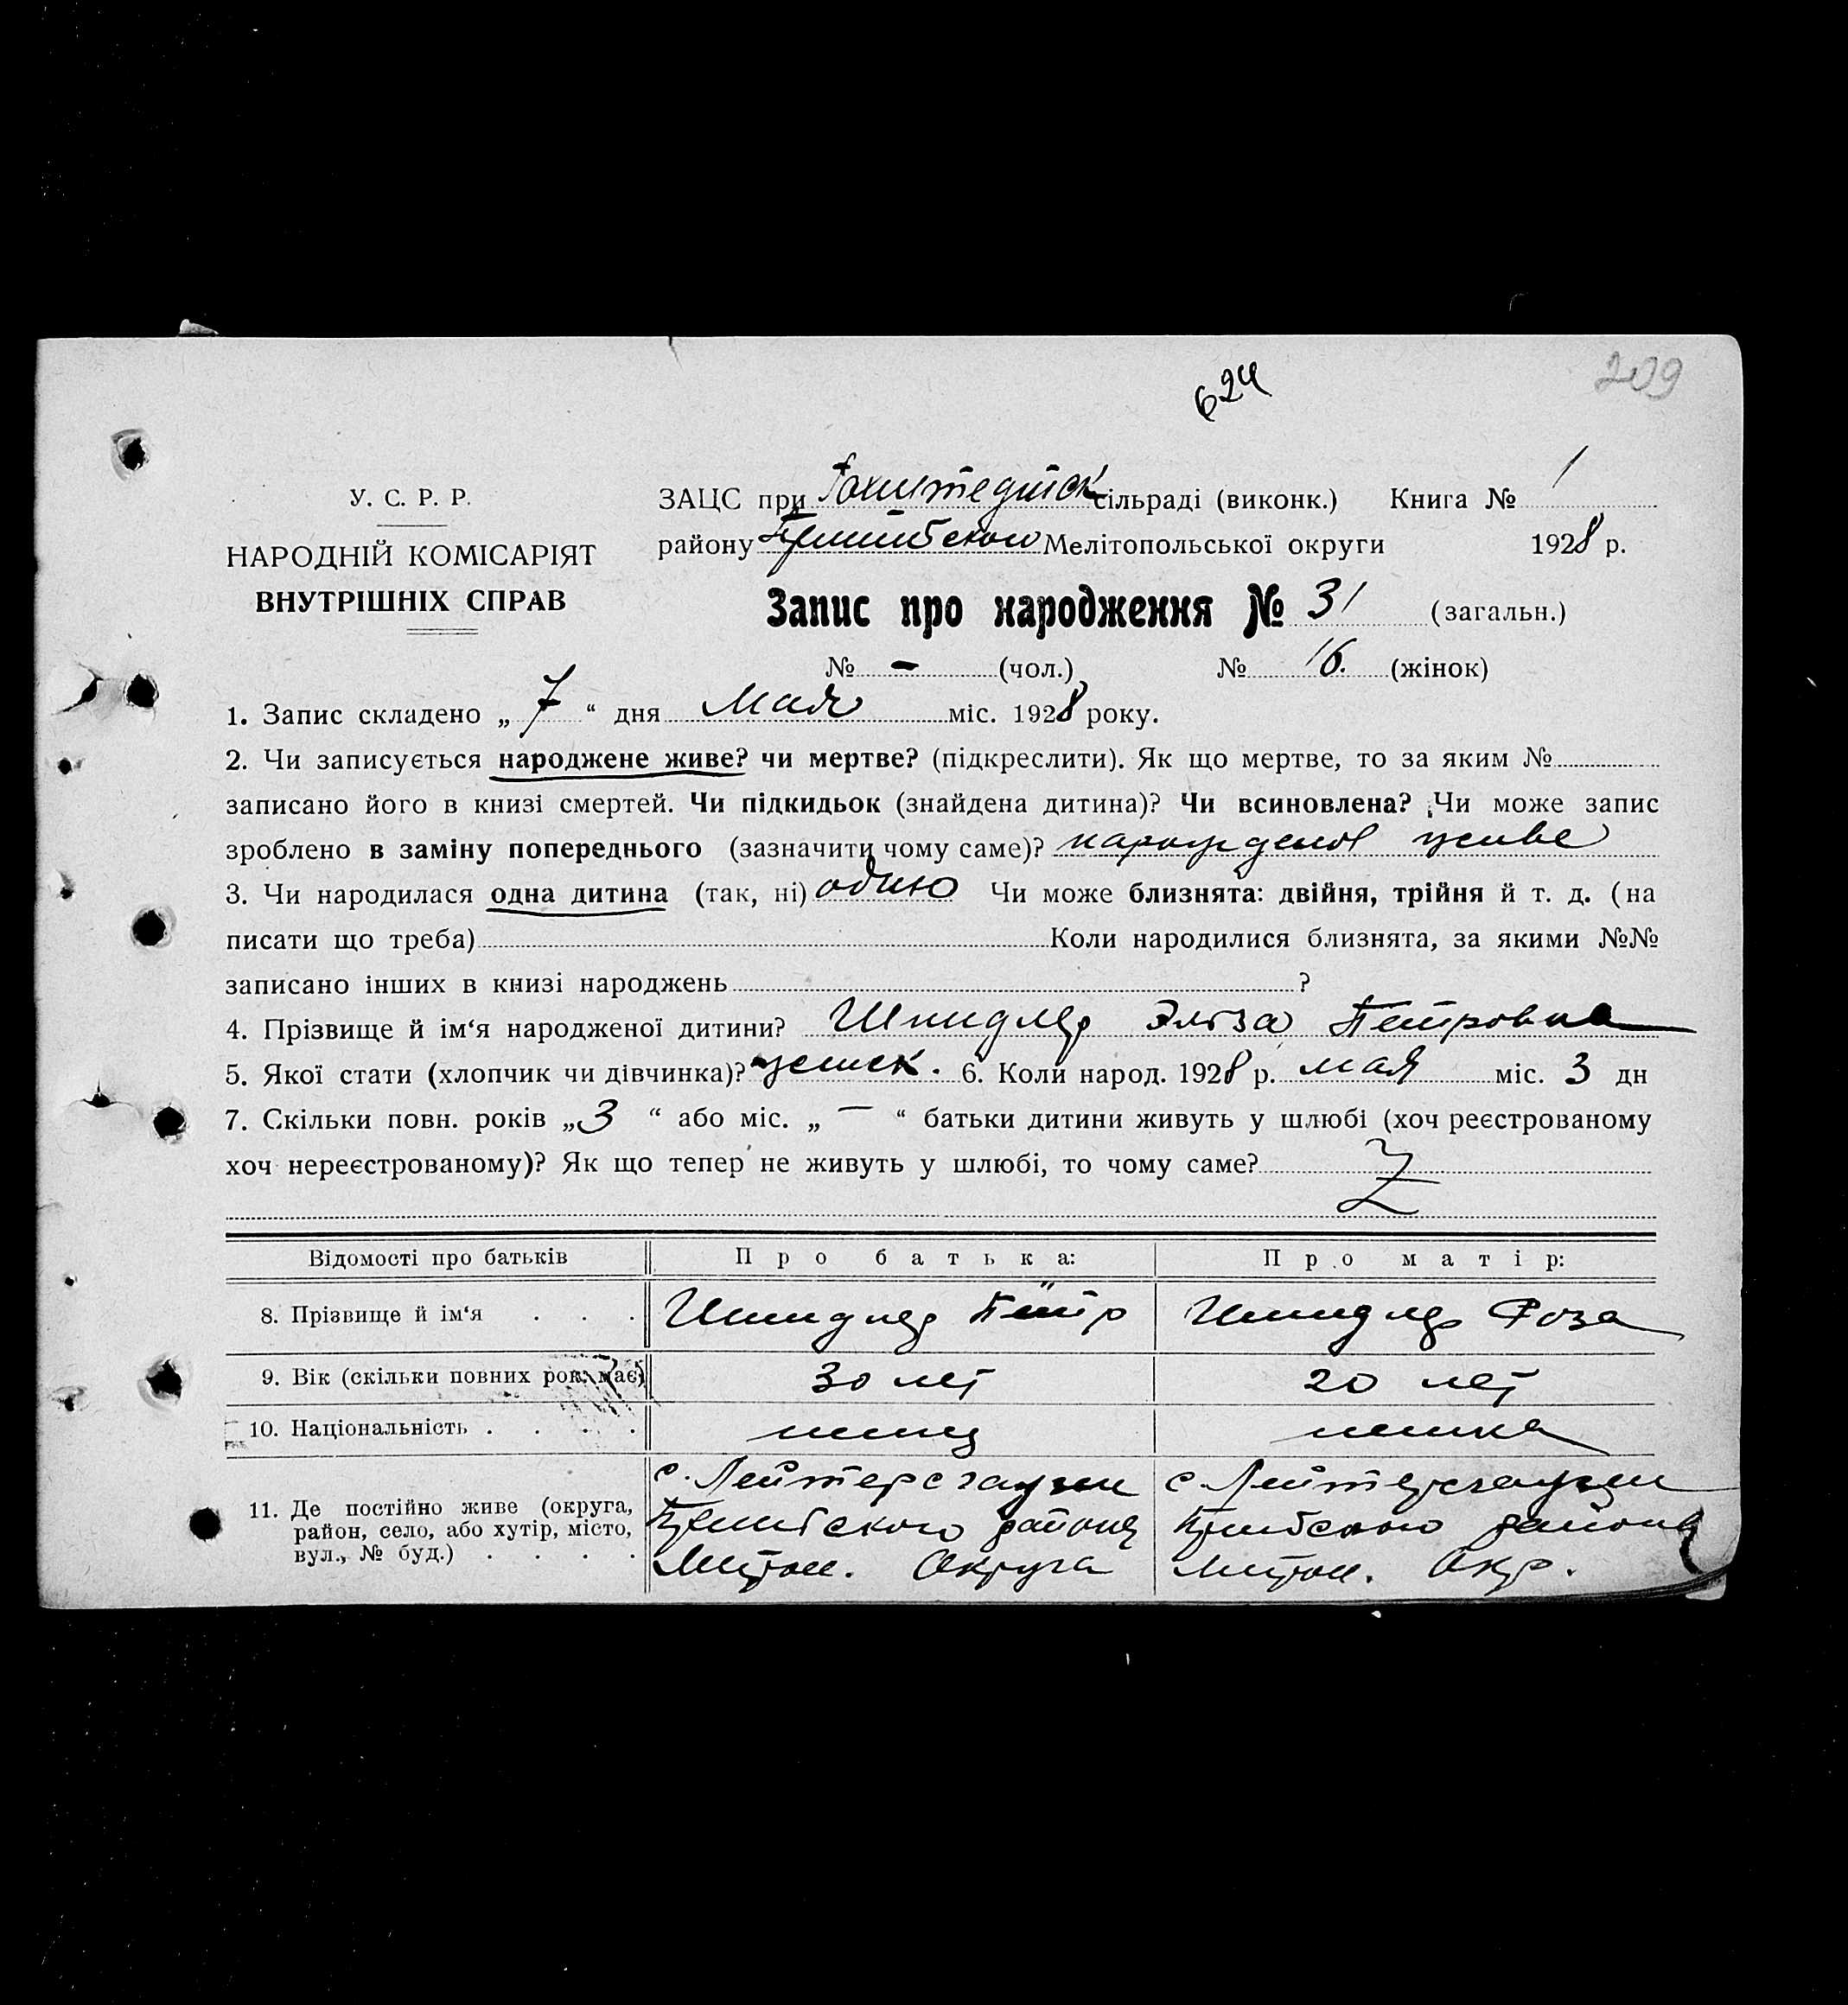 624
209
У. С. Р. Р.
НАРОДНІЙ КОМІСАРІЯТ
ВНУТРІШНІХ СПРАВ
ЗАЦС при Гохштедтск сільраді (виконк.) Книга № 1
району Пришибского Мелітопольської округи 1928 р.
Запис про народження № 31 (загальн.)
№ - (чол.) № 16. (жінок)
1. Запис складено „ 7 “ дня мая міс. 1928 року.
2. Чи записується народжене живе? чи мертве? (підкреслити). Як що мертве, то за яким №
записано його в книзі смертей. Чи підкидьок (знайдена дитина)? Чи всиновлена? Чи може запис
зроблено в заміну попереднього (зазначити чому саме)? живе
3. Чи народилася одна дитина (так, ні) Чи може близнята: двійня, трійня й т. д. (на
писати що треба) Коли народилися близнята, за якими №№
записано інших в книзі народжень ?
4. Прізвище й ім‘я народженої дитини? Шпидлер Эльза Петровна
5. Якої стати (хлопчик чи дівчинка)? женск. 6. Коли народ. 1928 р. мая міс. 3 дн
7. Скільки повн. років „ 3 “ або міс. „ — “ батьки дитини живуть у шлюбі (хоч реєстрованому
хоч нереєстрованому)? Як що тепер не живуть у шлюбі, то чому саме?
Відомості про батьків Про батька: Про матір:
8. Прізвище й ім‘я . . . Шпидлер Петр Шпидлер Роза
9. Вік (скільки повних рок. має) 30 лет 20 лет
10. Національність . . . . немец немка
11. Де постійно живе (округа, район, село, або хутір, місто, вул., № буд.) . . . .
с. Лейтерсгаузен
Пришибского района
Мелитоп. Округа
с. Лейтерсгаузен
Пришибского района
Мелитоп. Окр.